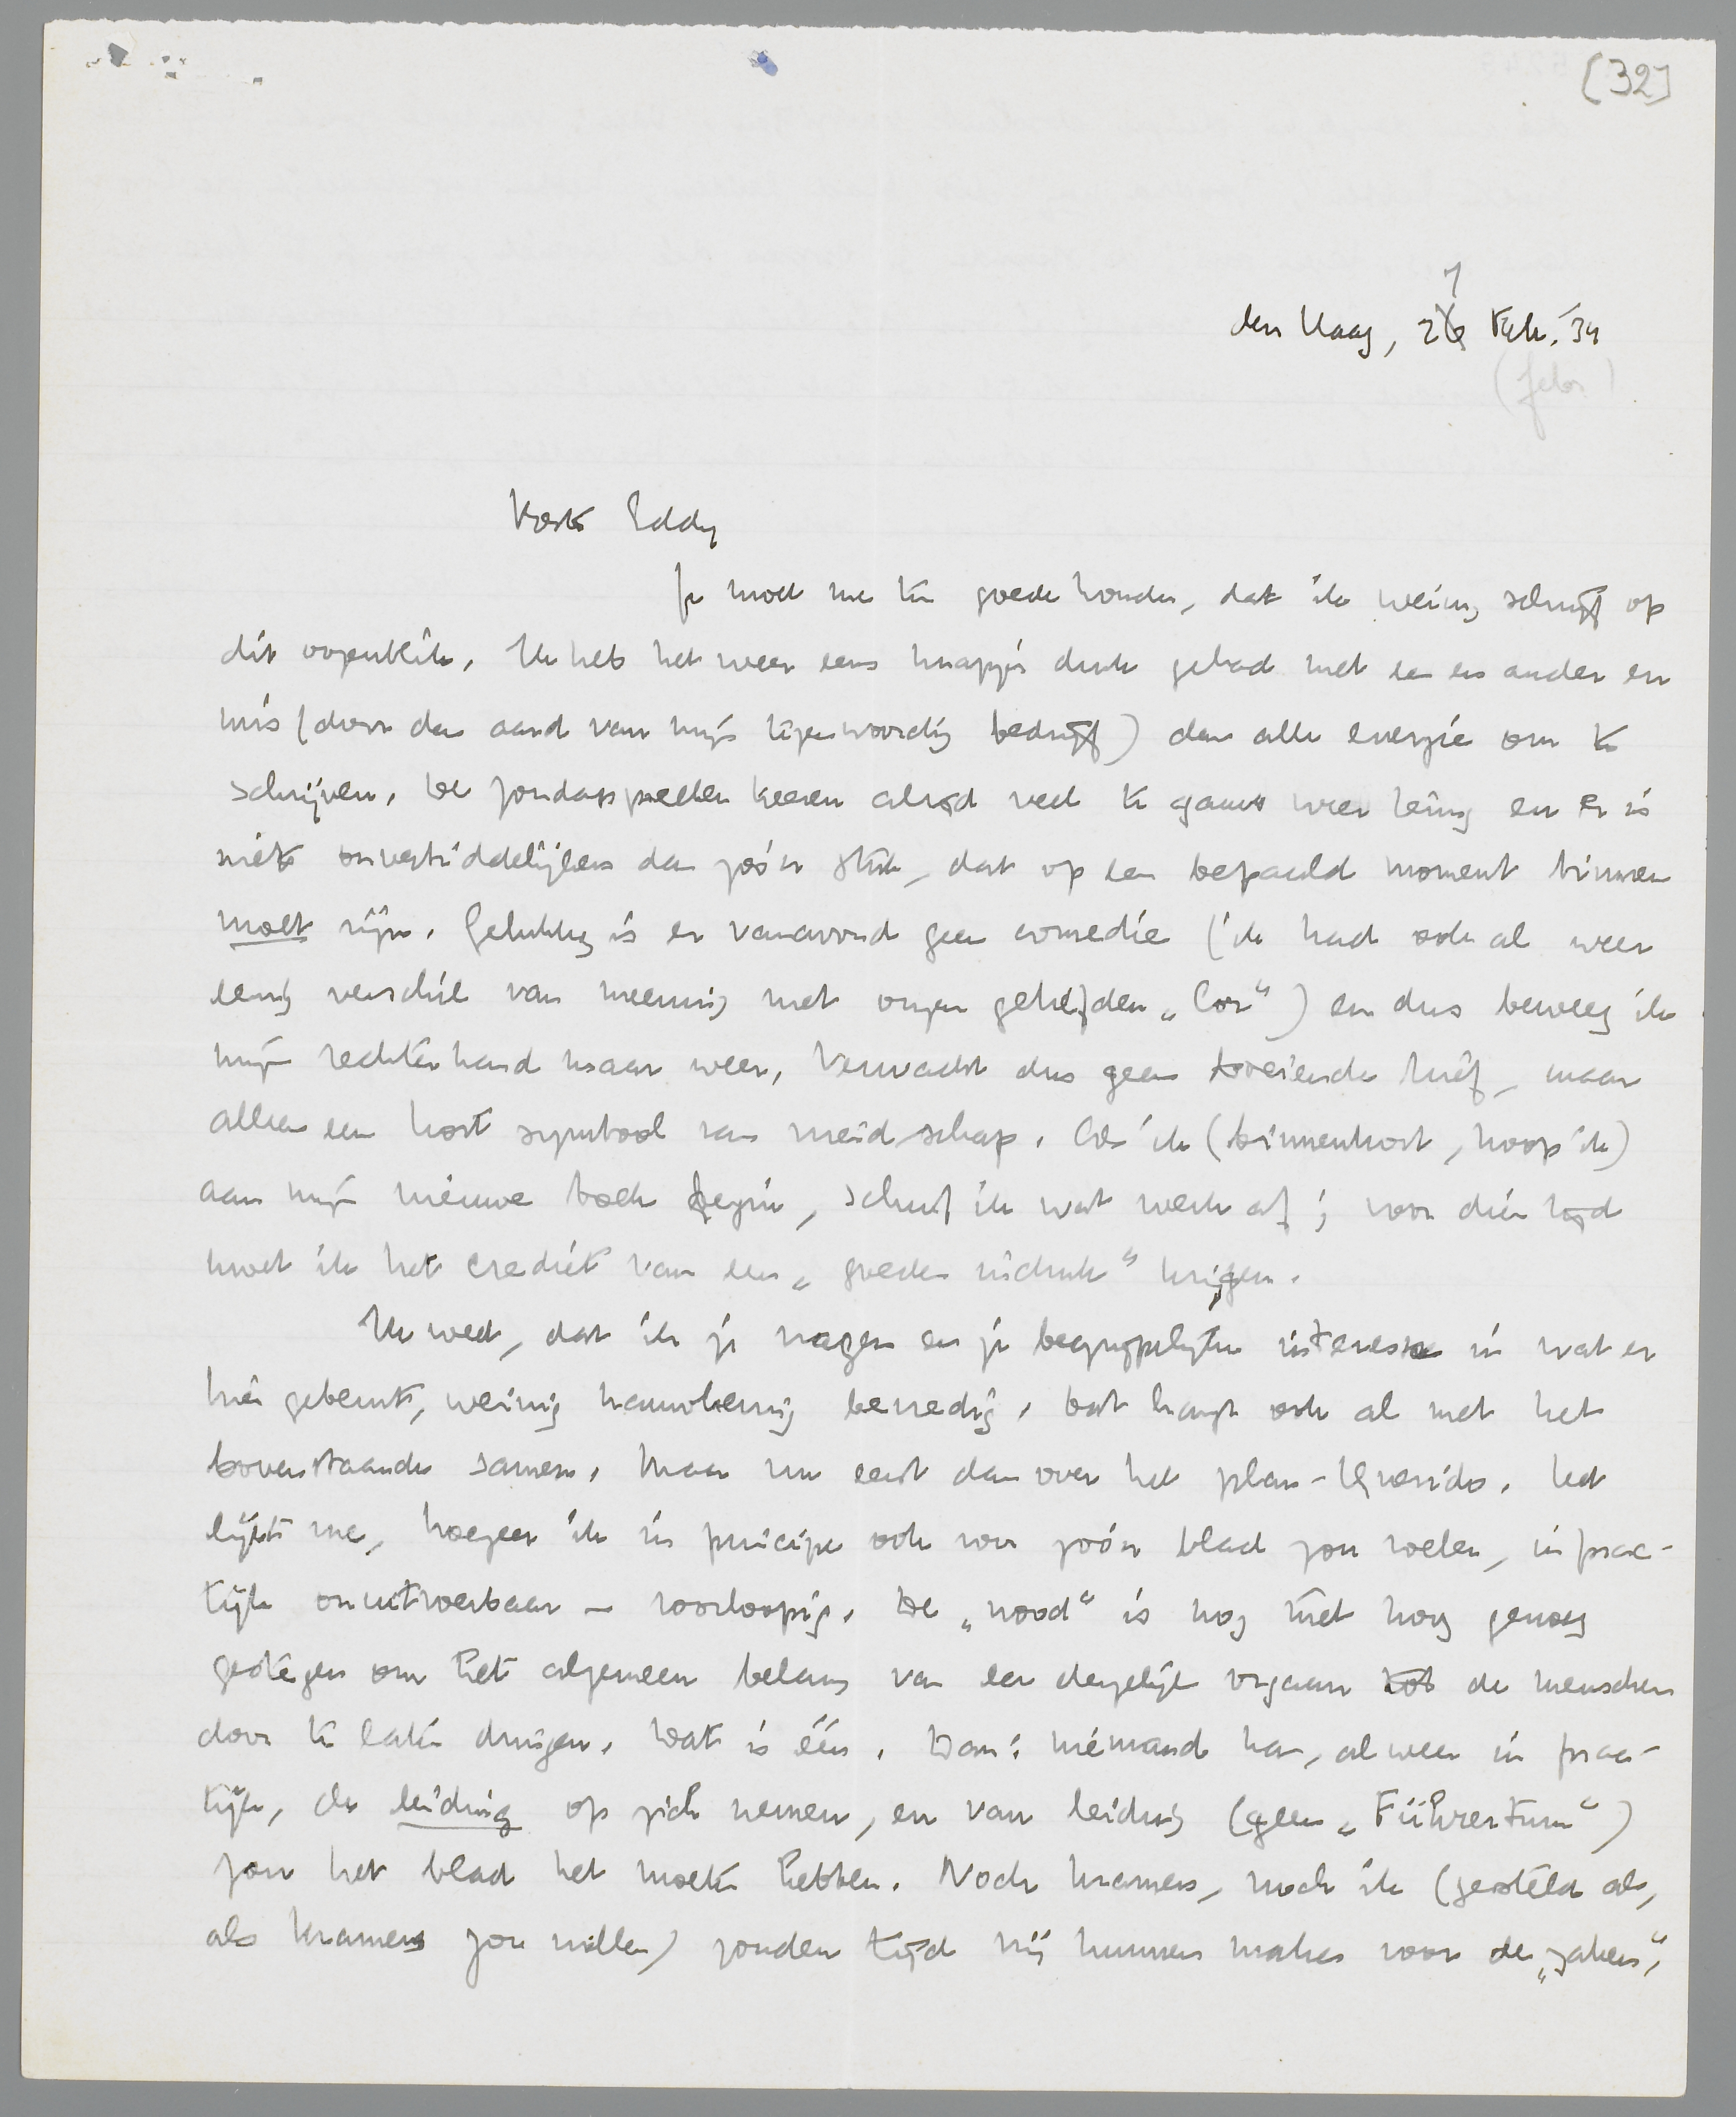 [32]
7
den Haag, 26 Febr. '34
(febr)
Beste Eddy
Je moet me ten goede houden, dat ik weinig schrijf op
dit oogenblik. Ik heb het weer eens knapjes druk gehad met een en ander en
mis (door den aard van mijn tegenwoordig bedrijf) dan alle energie om te
schrijven. De zondagsbladen keeren altijd veel te gauw weer terug en er is
niets onverbiddelijkers dan zóó'n stuk, dat op een bepaald moment binnen
moet zijn. Gelukkig is er vanavond geen comedie (ik had ook al weer
eenig verschil van meening met onzen geliefden „Cor") en dus beweeg ik
mijn rechterhand maar weer. Verwacht dus geen boeiende brief, maar
alleen een kort symbool van vriendschap. Als ik (binnenkort, hoop ik)
aan mijn nieuwe boek begin, schuif ik wat werk af; voor dien tijd
moet ik het crediet van een „goeden indruk" krijgen.
Ik weet, dat ik je vragen en je begrijpelijke interesse in wat er
hier gebeurt, weinig nauwkeurig bevredig. Dat hangt ook al met het
bovenstaande samen. Maar nu eerst dan over het plan-Querido. Het
lijkt me, hoezeer ik in principe ook voor zóó'n blad zou voelen, in prac-
tijk onuitvoerbaar – voorloopig. De „nood" is nog niet hoog genoeg
gestegen om het algemeen belang van een dergelijk orgaan tot de menschen
door te laten dringen. Dat is één. Dan: niemand kan, alweer in prac-
tijk, de leiding op zich nemen, en van leiding (geen „Führertum")
zou het blad het moeten hebben. Noch Kramers, noch ik (gesteld al,
als Kramers zou willen) zouden tijd vrij kunnen maken voor de „zaken",